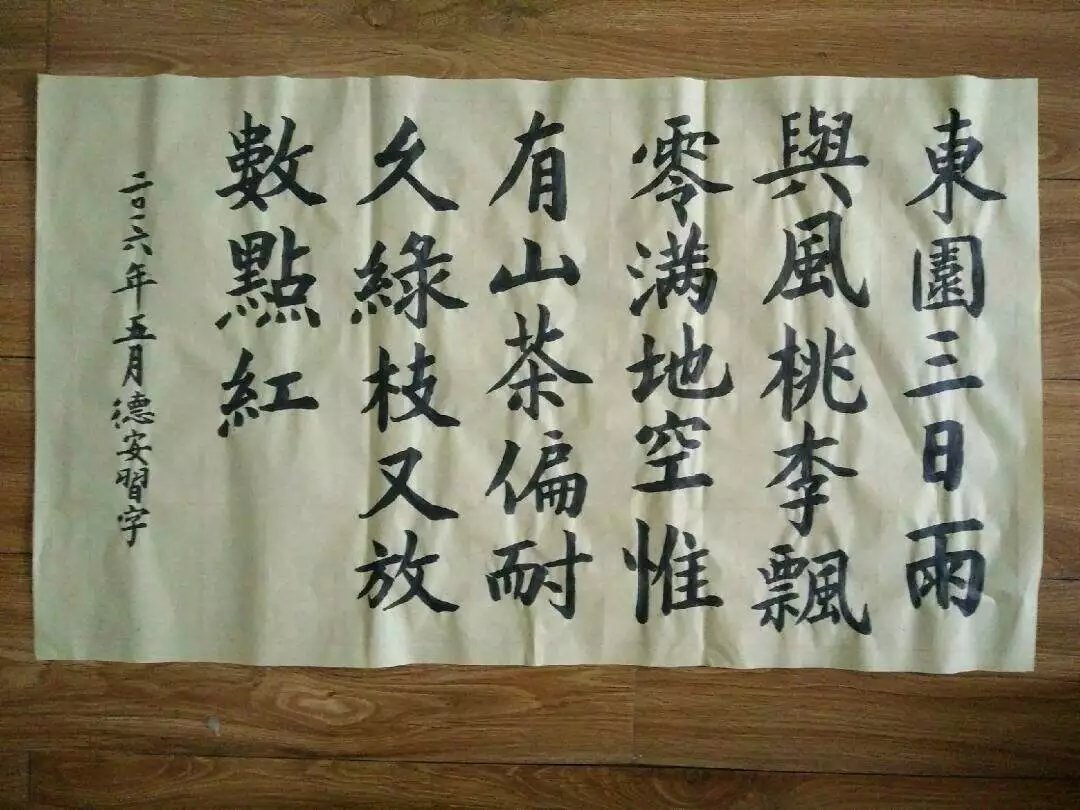 東園三日雨
與風桃李飄
零满地空惟
有山茶偏耐
久綠枝又放
數點紅
二〇一六年五月德安習字